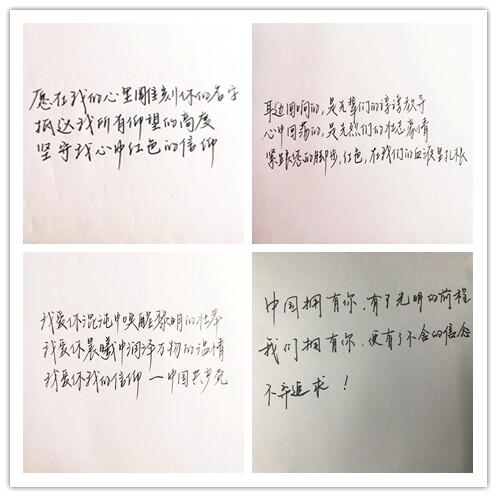 愿在我的心里雕刻你的名字
抵达我所有仰望的高度
坚守我心中红色的信仰
耳边回响的,是先辈们的谆谆教导
心中回荡的,是先烈们的壮志豪情
紧跟您的脚步,红色,在我们的血液里扎根
我爱你混沌中唤醒黎明的壮举
我爱你晨曦中润泽万物的温情
我爱你我的信仰—中国共产党
中国拥有你,有了光明的前程
我们拥有你,便有了不舍的信念
不弃追求!